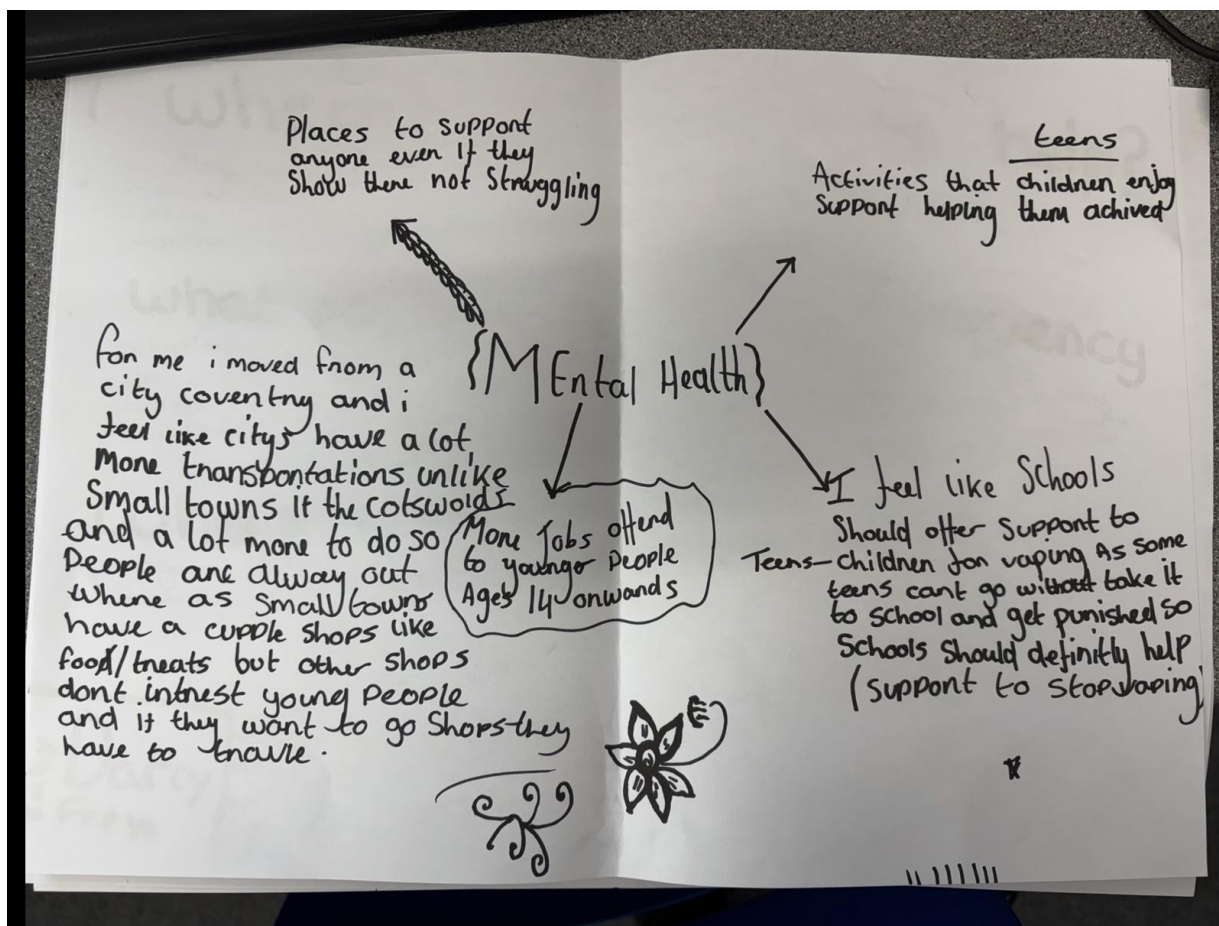 Places to support
anyone even if they
Show there not Struggling
teens
Activities that children enjoy
Support helping them achived
{MEntal Health}
for me i moved from a
city coventry and i
feel like citys have a lot
More transportations unlike
Small towns if the cotswolds
and a lot more to do so
People are alway out
where as small towns
have a cupple shops like
food/treats but other shops
dont intrest young People
and if they want to go Shops they
have to travle.
More Jobs offerd
to younger People
Ages 14 onwards
I feel like Schools
Should offer Support to
Teens- children for vaping As some
teens cant go without take it
to school and get punished so
Schools should definitly help
(support to stop vaping)